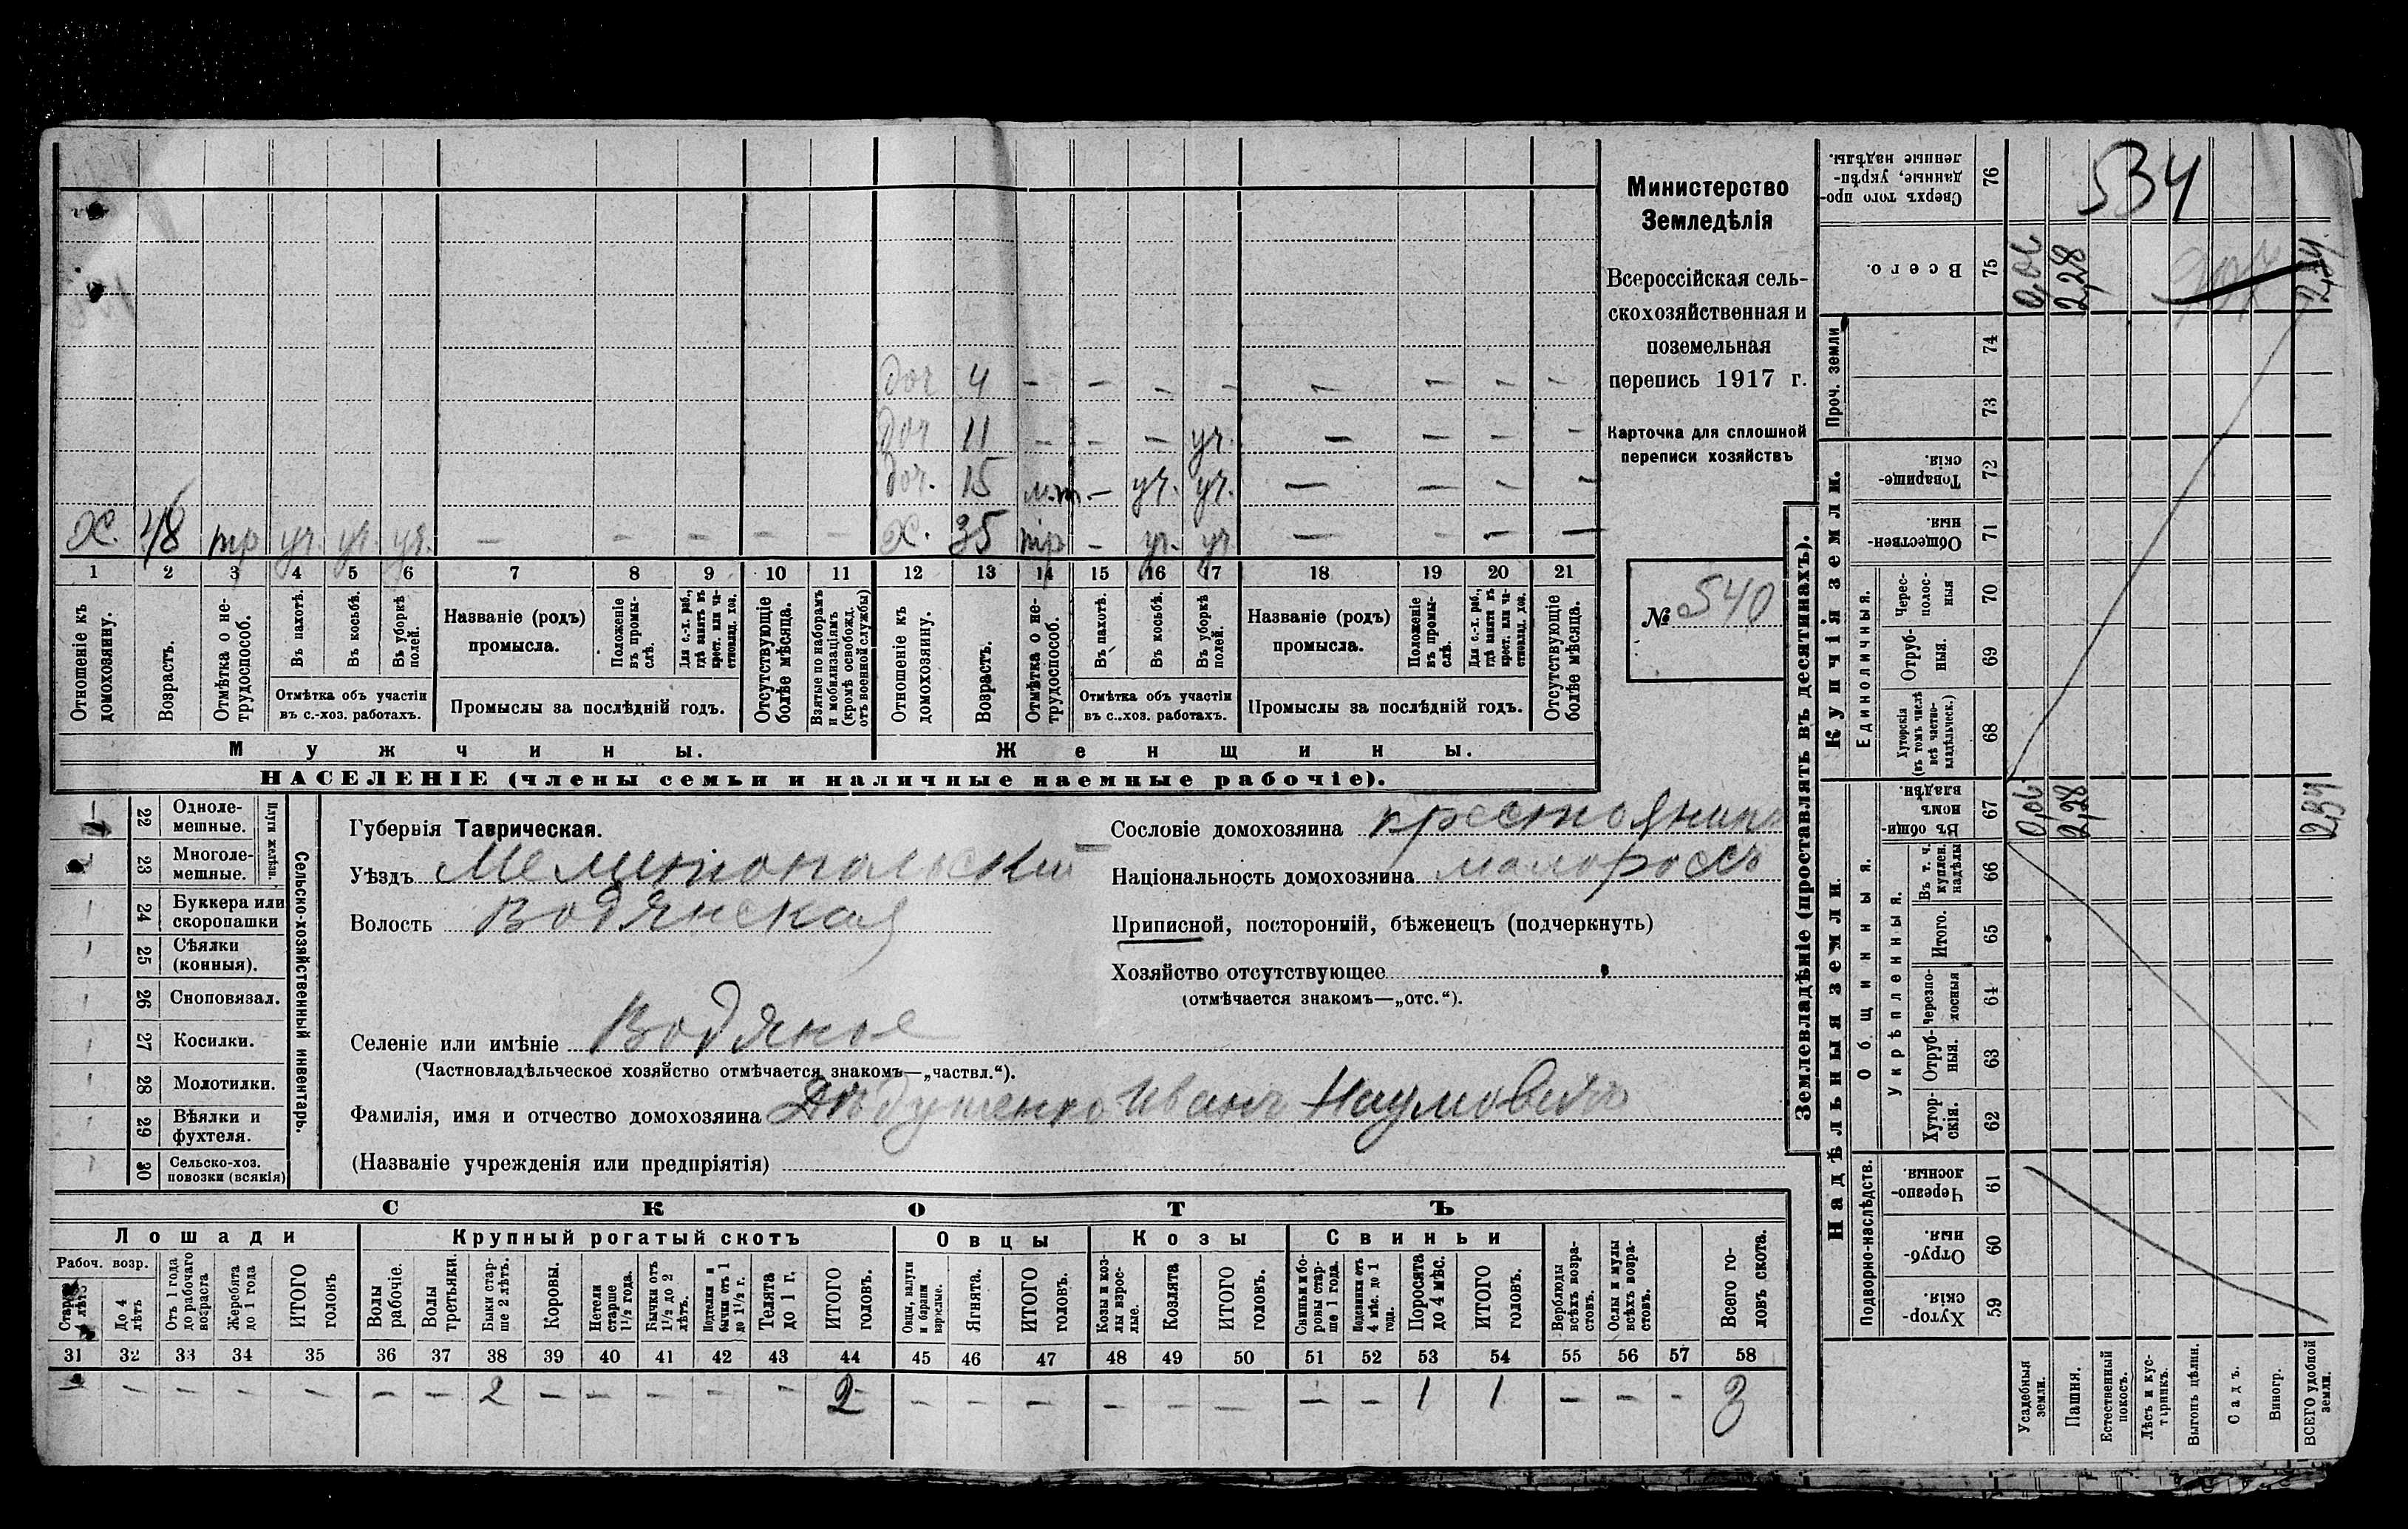 дочь 4 — — — — — — — —
доч 11 — — — уч. — — — —
доч. 15 м.т — уч. уч. — — — —
Х. 48 тр уч. уч. уч. — — — — — Х. 35 тр — уч. уч. — — — —
1 2 3 4 5 6 7 8 9 10 11 12 13 14 15 16 17 18 19 20 21
Отношеніе къ домохозяину.
Возрастъ.
Отмѣтка о не-трудоспособ.
Въ пахотѣ.
Въ косьбѣ.
Въ уборкѣ полей.
Отмѣтка объ участіи
въ с.-хоз. работахъ.
Названіе (родъ)
промысла.
Положеніе въ промы-слѣ.
Для с.-х. раб., гдѣ занятъ въ крест. или ча-стновлад. хоз.
Промыслы за послѣдній годъ.
Отсутствующіе болѣе мѣсяца.
Взятые по наборамъ и мобилизаціямъ (кромѣ освобожд. отъ военной службы)
Отношеніе къ домохозяину.
Возрастъ.
Отмѣтка о не-трудоспособ.
Въ пахотѣ.
Въ косьбѣ.
Въ уборкѣ полей.
Отмѣтка объ участіи
въ с..хоз. работахъ.
Названіе (родъ)
промысла.
Положеніе въ промы-слѣ.
Для с.-х. раб., гдѣ занятъ въ крест. или ча-стновлад. хоз.
Промыслы за послѣдній годъ.
Отсутствующіе болѣе мѣсяца.
Мужчины.
Женщины.
НАСЕЛЕНІЕ (члены семьи и наличные наемные рабочіе).
Министерство
Земледѣлія
Всероссійская сель-
скохозяйственная и
поземельная
перепись 1917 г.
Карточка для сплошной
переписи хозяйствъ
№ 540
22 Одноле-мешные.
23 Многоле-мешные.
Плуги желѣзн.
24 Буккера или скоропашки
25 Сѣялки (конныя).
26 Сноповязал.
27 Косилки.
28 Молотилки.
29 Вѣялки и фухтеля.
30 Сельско-хоз. повозки (всякія)
Сельско-хозяйственный инвентарь.
Губернія Таврическая.
Уѣздъ Мелитопольский
Волость Водянская
Селеніе или имѣніе Водяное
(Частновладѣльческое хозяйство отмѣчается знакомъ—„частвл.“).
Фамилія, имя и отчество домохозяина Дѣдушенко Иванъ Наумовичъ
(Названіе учрежденія или предпріятія)
Сословіе домохозяина крестьянинъ
Національность домохозяина малороссъ
Приписной, посторонній, бѣженецъ (подчеркнуть)
Хозяйство отсутствующее
(отмѣчается знакомъ—„отс.“).
СКОТЪ
Лошади
Крупный рогатый скотъ
Овцы
Козы
Свиньи
Рабоч. возр.
Старше 4 лѣтъ
До 4 лѣтъ
Отъ 1 года до рабочаго возраста
Жеребята до 1 года
ИТОГО головъ
Волы рабочіе.
Волы третьяки.
Быки стар-ше 2 лѣтъ.
Коровы.
Нетели старше 1½ года.
Бычки отъ 1½ до 2 лѣтъ.
Подтелки и бычки отъ 1 до 1½ г.
Телята до 1 г.
ИТОГО головъ.
Овцы, валухи и бараны взрослые.
Ягнята.
ИТОГО головъ.
Козы и коз-лы взрос-лые.
Козлята
ИТОГО головъ.
Свиньи и бо-ровы стар-ше 1 года.
Подсвинки отъ 4 мѣс. до 1 года.
Поросята до 4 мѣс.
ИТОГО головъ.
Верблюды всѣхъ возра-стовъ.
Ослы и мулы всѣхъ возра-стовъ.
Всего го-ловъ скота.
31 32 33 34 35 36 37 38 39 40 41 42 43 44 45 46 47 48 49 50 51 52 53 54 55 56 57 58
— — — — — — — 2 — — — — — 2 — — — — — — — — 1 1 — — — 3
Землевладѣніе (проставлять въ десятинахъ).
Надѣльныя земли.
Купчія земли.
Проч. земли
Подворно-наслѣдств.
Общинныя.
Укрѣпленныя.
Единоличныя.
Сверхъ того про-данные, укрѣп-ленные надѣлы. 76
534
Всего. 75 0,06 2,28 2,34
74
73
Товарище-скія. 72
Обществен-ныя. 71
Черес-полос-ныя 70
Отруб-ныя. 69
Хуторскія (въ томъ числѣ всѣ частно-владѣльческ.) 68
Въ общи-номъ владѣн. 67 0,06 2,28 2,34
Въ т. ч. куплен. надѣлы 66
Итого. 65
Черезпо-лосныя 64
Отруб-ныя. 63
Хутор-скія. 62
Черезпо-лосныя. 61
Отруб-ныя. 60
Хутор-скія. 59
Усадебныя земли.
Пашня.
Естественный покосъ.
Лѣсъ и кус-тарникъ.
Выгонъ цѣлин.
Садъ.
Виногр.
ВСЕГО удобной земли.